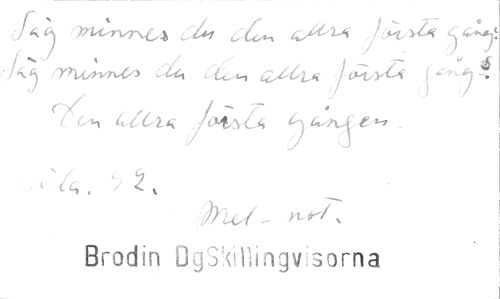 Säg minnes du den allra första gång?
Säg minnes du den allra första gång?
Den allra första gången.
sida. 92.
Mel-not.
Brodin DgSkillingvisorna